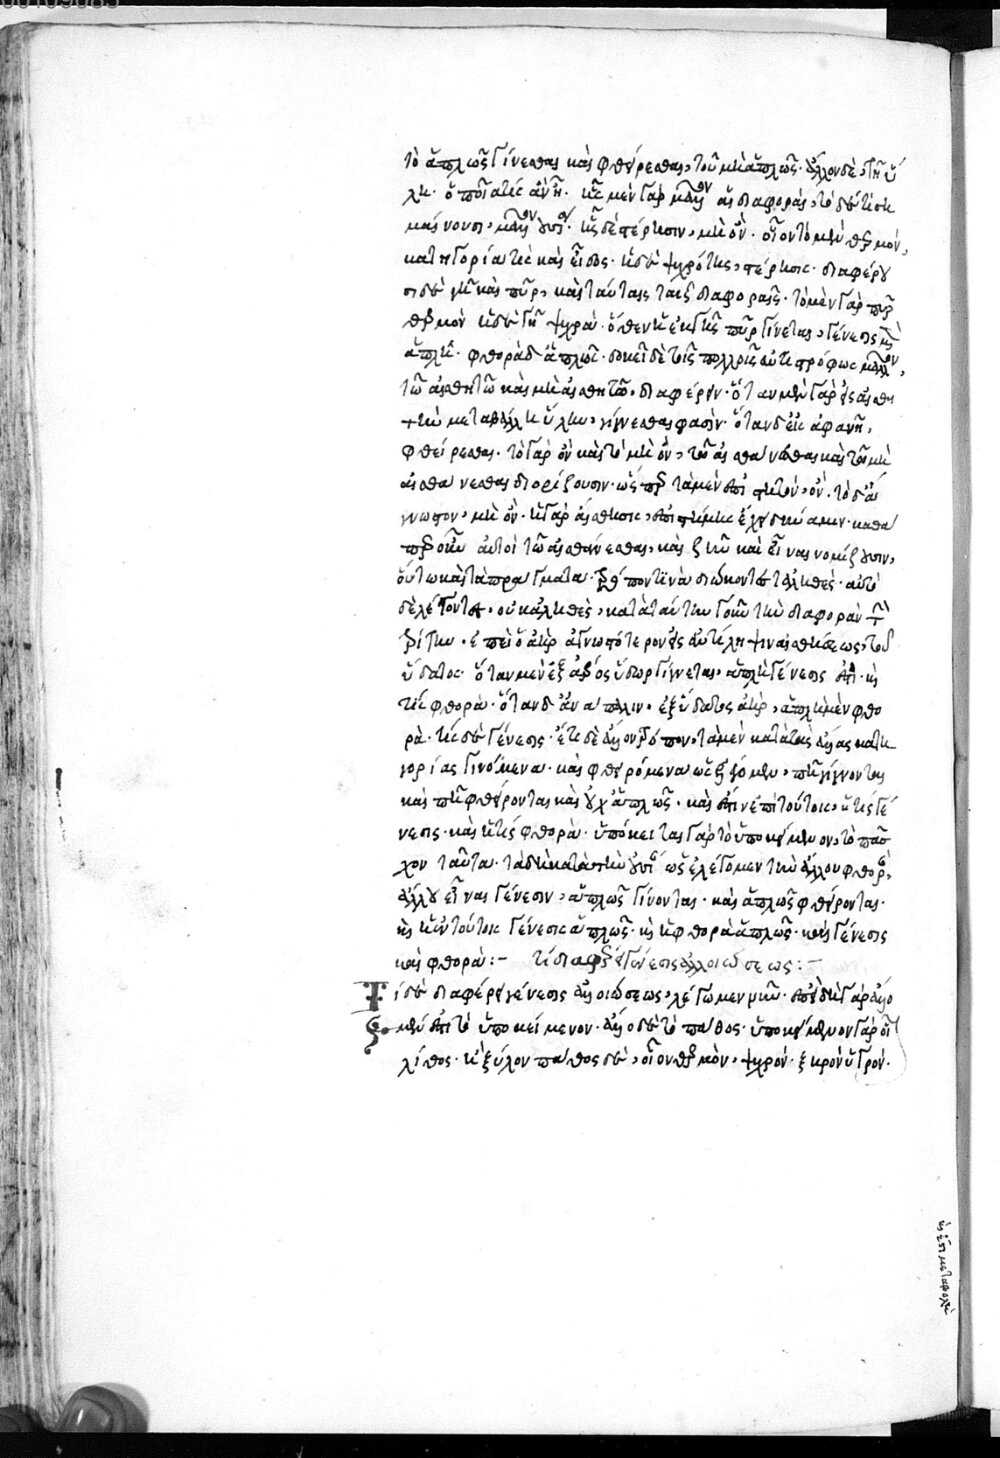 τὸ ἁπλῶς γίνεσθαι καὶ φθείρεσθαι, τοῦ μὴ ἁπλῶς· ἄλλον δὲ, τῇ ὕ
λῃ· ὁποία τις ἂν ᾖ· ἧς μὲν γὰρ μᾶλλον αἱ διαφοραὶ, τόδε τι ση
μαίνουσι, μᾶλλον οὐσία· ἧς δὲ στέρησιν, μὴ ὄν· οἷον τὸ μὲν θερμὸν,
κατηγορία τις καὶ εἶδος· ἡ δὲ ψυχρότης, στέρησις· διαφέρου
σι δὲ γῆ καὶ πῦρ, καὶ ταύταις ταῖς διαφοραῖς· τὸ μὲν γὰρ πῦρ
θερμὸν ἡ δὲ γῆ ψυχρά· ὅθεν ἡ ἐκ γῆς πῦρ γίνεται, γένεσις μὲν
ἁπλῆ· φθορὰ δ' ἁπλῶς· δοκεῖ δὲ τοῖς πολλοῖς οὐ τῇ προφάσει μᾶλλον,
τῷ αἰσθητῷ καὶ μὴ αἰσθητῷ, διαφέρειν· ὅταν μὲν γὰρ εἰς αἰσθη
τὴν μεταβάλλῃ ὕλην, γίγνεσθαι φασὶν· ὅταν δ' εἰς ἀφανῆ,
φθείρεσθαι· τὸ γὰρ ὂν καὶ τὸ μὴ ὂν, τῷ αἰσθάνεσθαι καὶ τῷ μὴ
αἰσθάνεσθαι διορίζουσιν· ὥσπερ τὰ μὲν ἐπιστητὸν, ὄν· τὸ δ' ἄ
γνωστον, μὴ ὄν· ἡ γὰρ αἴσθησις, ἐπιστήμης ἔχει δύναμιν· καθά
περ οὖν αὐτοὶ τῷ αἰσθάνεσθαι, καὶ ζῆν καὶ εἶναι νομίζουσιν,
οὕτω καὶ τὰ πράγματα· τρόπον τινὰ διώκοντες τἀληθές· αὐτὸ
δὲ λέγοντες, οὐκ ἀληθές, κατὰ ταύτην γοῦν τὴν διαφορὰν τὴν
τρίτην· ἐπεὶ ὁ ἀὴρ ἀγνωστότερον εἰς ἀντίληψιν αἰσθήσεως, τοῦ
ὕδατος· ὅταν μὲν ἐξ ἀέρος ὕδωρ γίγνεται, ἁπλῆ γένεσις ἐστι· καὶ
τὶς φθορά· ὅταν δ' ἀνάπαλιν, ἐξ ὕδατος ἀὴρ, ἁπλῆ μὲν φθο
ρά· τὶς δὲ γένεσις· ἔτι δὲ ἄλλον τρόπον, τὰ μὲν κατὰ τὰς ἄλλας κατη
γορίας γινόμενα· καὶ φθειρόμενα ὡς ἐροῦμεν, πῇ γίγνονται
καὶ πῇ φθείρονται καὶ οὐχ ἁπλῶς· καὶ ἔστιν ἐπὶ τούτοις, ἡ τὶς γέ
νεσις· καὶ ἡ τὶς φθορά· ὑπόκειται γὰρ τὸ ὑποκείμενον, τὸ πάσ
χον ταῦτα· τὰ δὲ κατὰ τὴν οὐσίαν ὡς ἐλέγομεν τὴν ἄλλου φθορὰν,
ἄλλου εἶναι γένεσιν, ἁπλῶς γίνονται· καὶ ἁπλῶς φθείρονται·
καὶ ἡ ἐν τούτοις γένεσις ἁπλῶς· καὶ ἡ φθορὰ ἁπλῶς· καὶ γένεσις
καὶ φθορά:– τί διαφέρει γένεσις ἀλλοιώσεως:–
Τί δὲ διαφέρει γένεσις ἀλλοιώσεως, λέγωμεν νῦν· ἐπειδὴ γὰρ ἄλλο
μέν ἐστι τὸ ὑποκείμενον· ἄλλο δὲ τὸ πάθος· ὑποκείμενον γὰρ οἷον
λίθος· ἢ ξύλον πάθος δὲ, οἷον θερμὸν, ψυχρόν· ξηρὸν ὑγρόν·